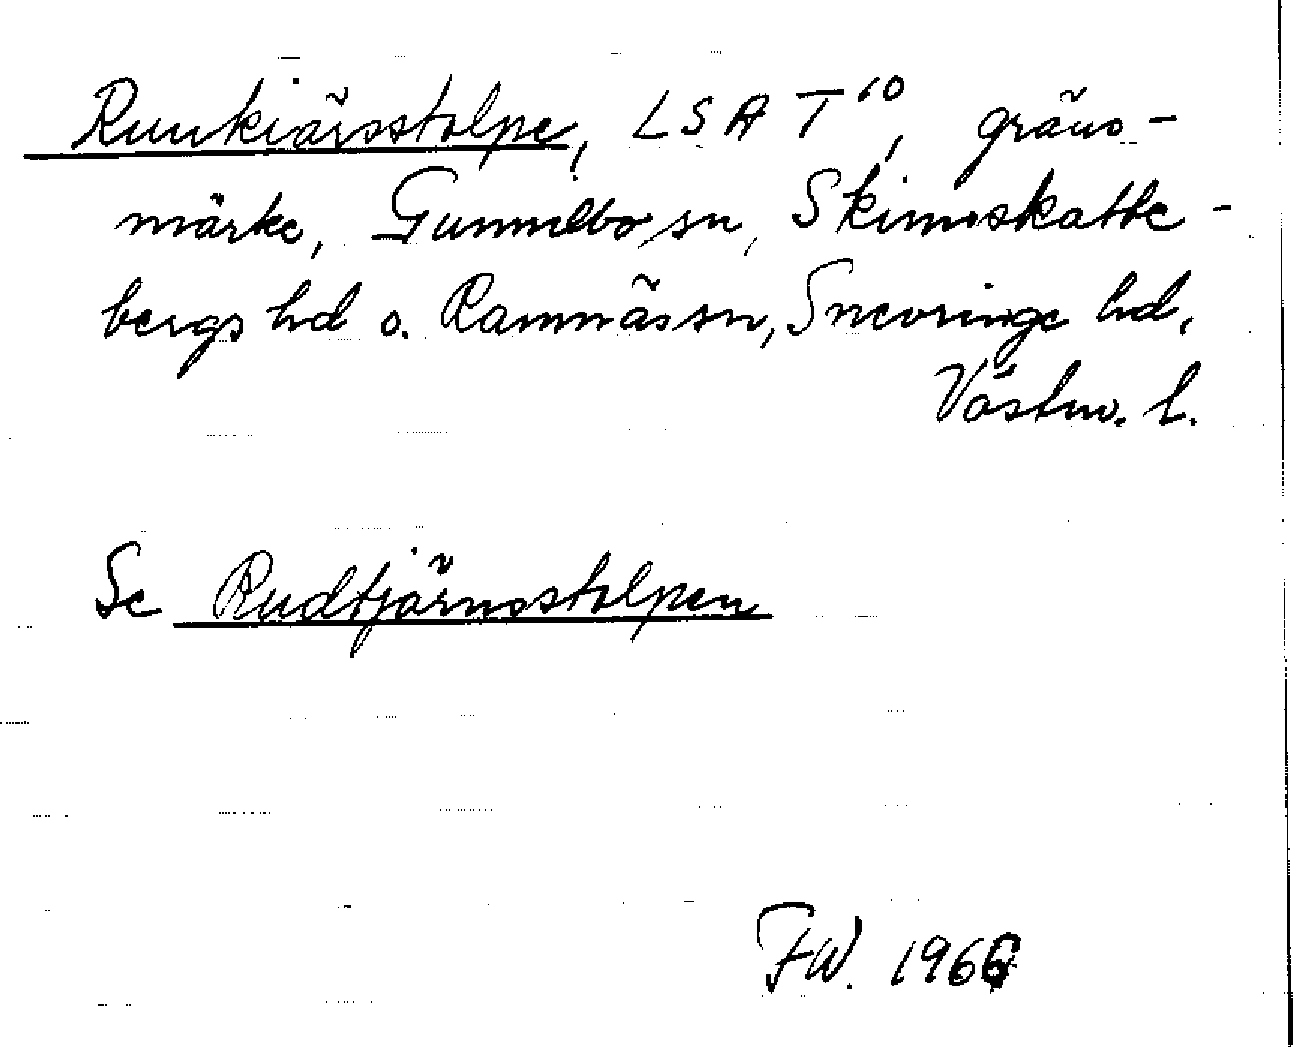 Runkiärsstolpe, LSA T¹⁰, gräns-
märke, Gunnilbo sn, Skinnskatte-
bergs hd o. Ramnäs sn, Snevringe hd,
Västm. l.
Se Rudtjärnsstolpen
FW. 1966